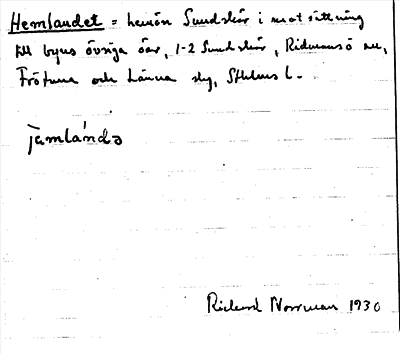 Hemlandet = hemön Sundskär i motsättning
till byns övriga öar, 1-2 Sundskär, Ridmansö sn,
Frötuna och Länna slg, Sthlms l.
jamlánda
Rickard Norrman 1930